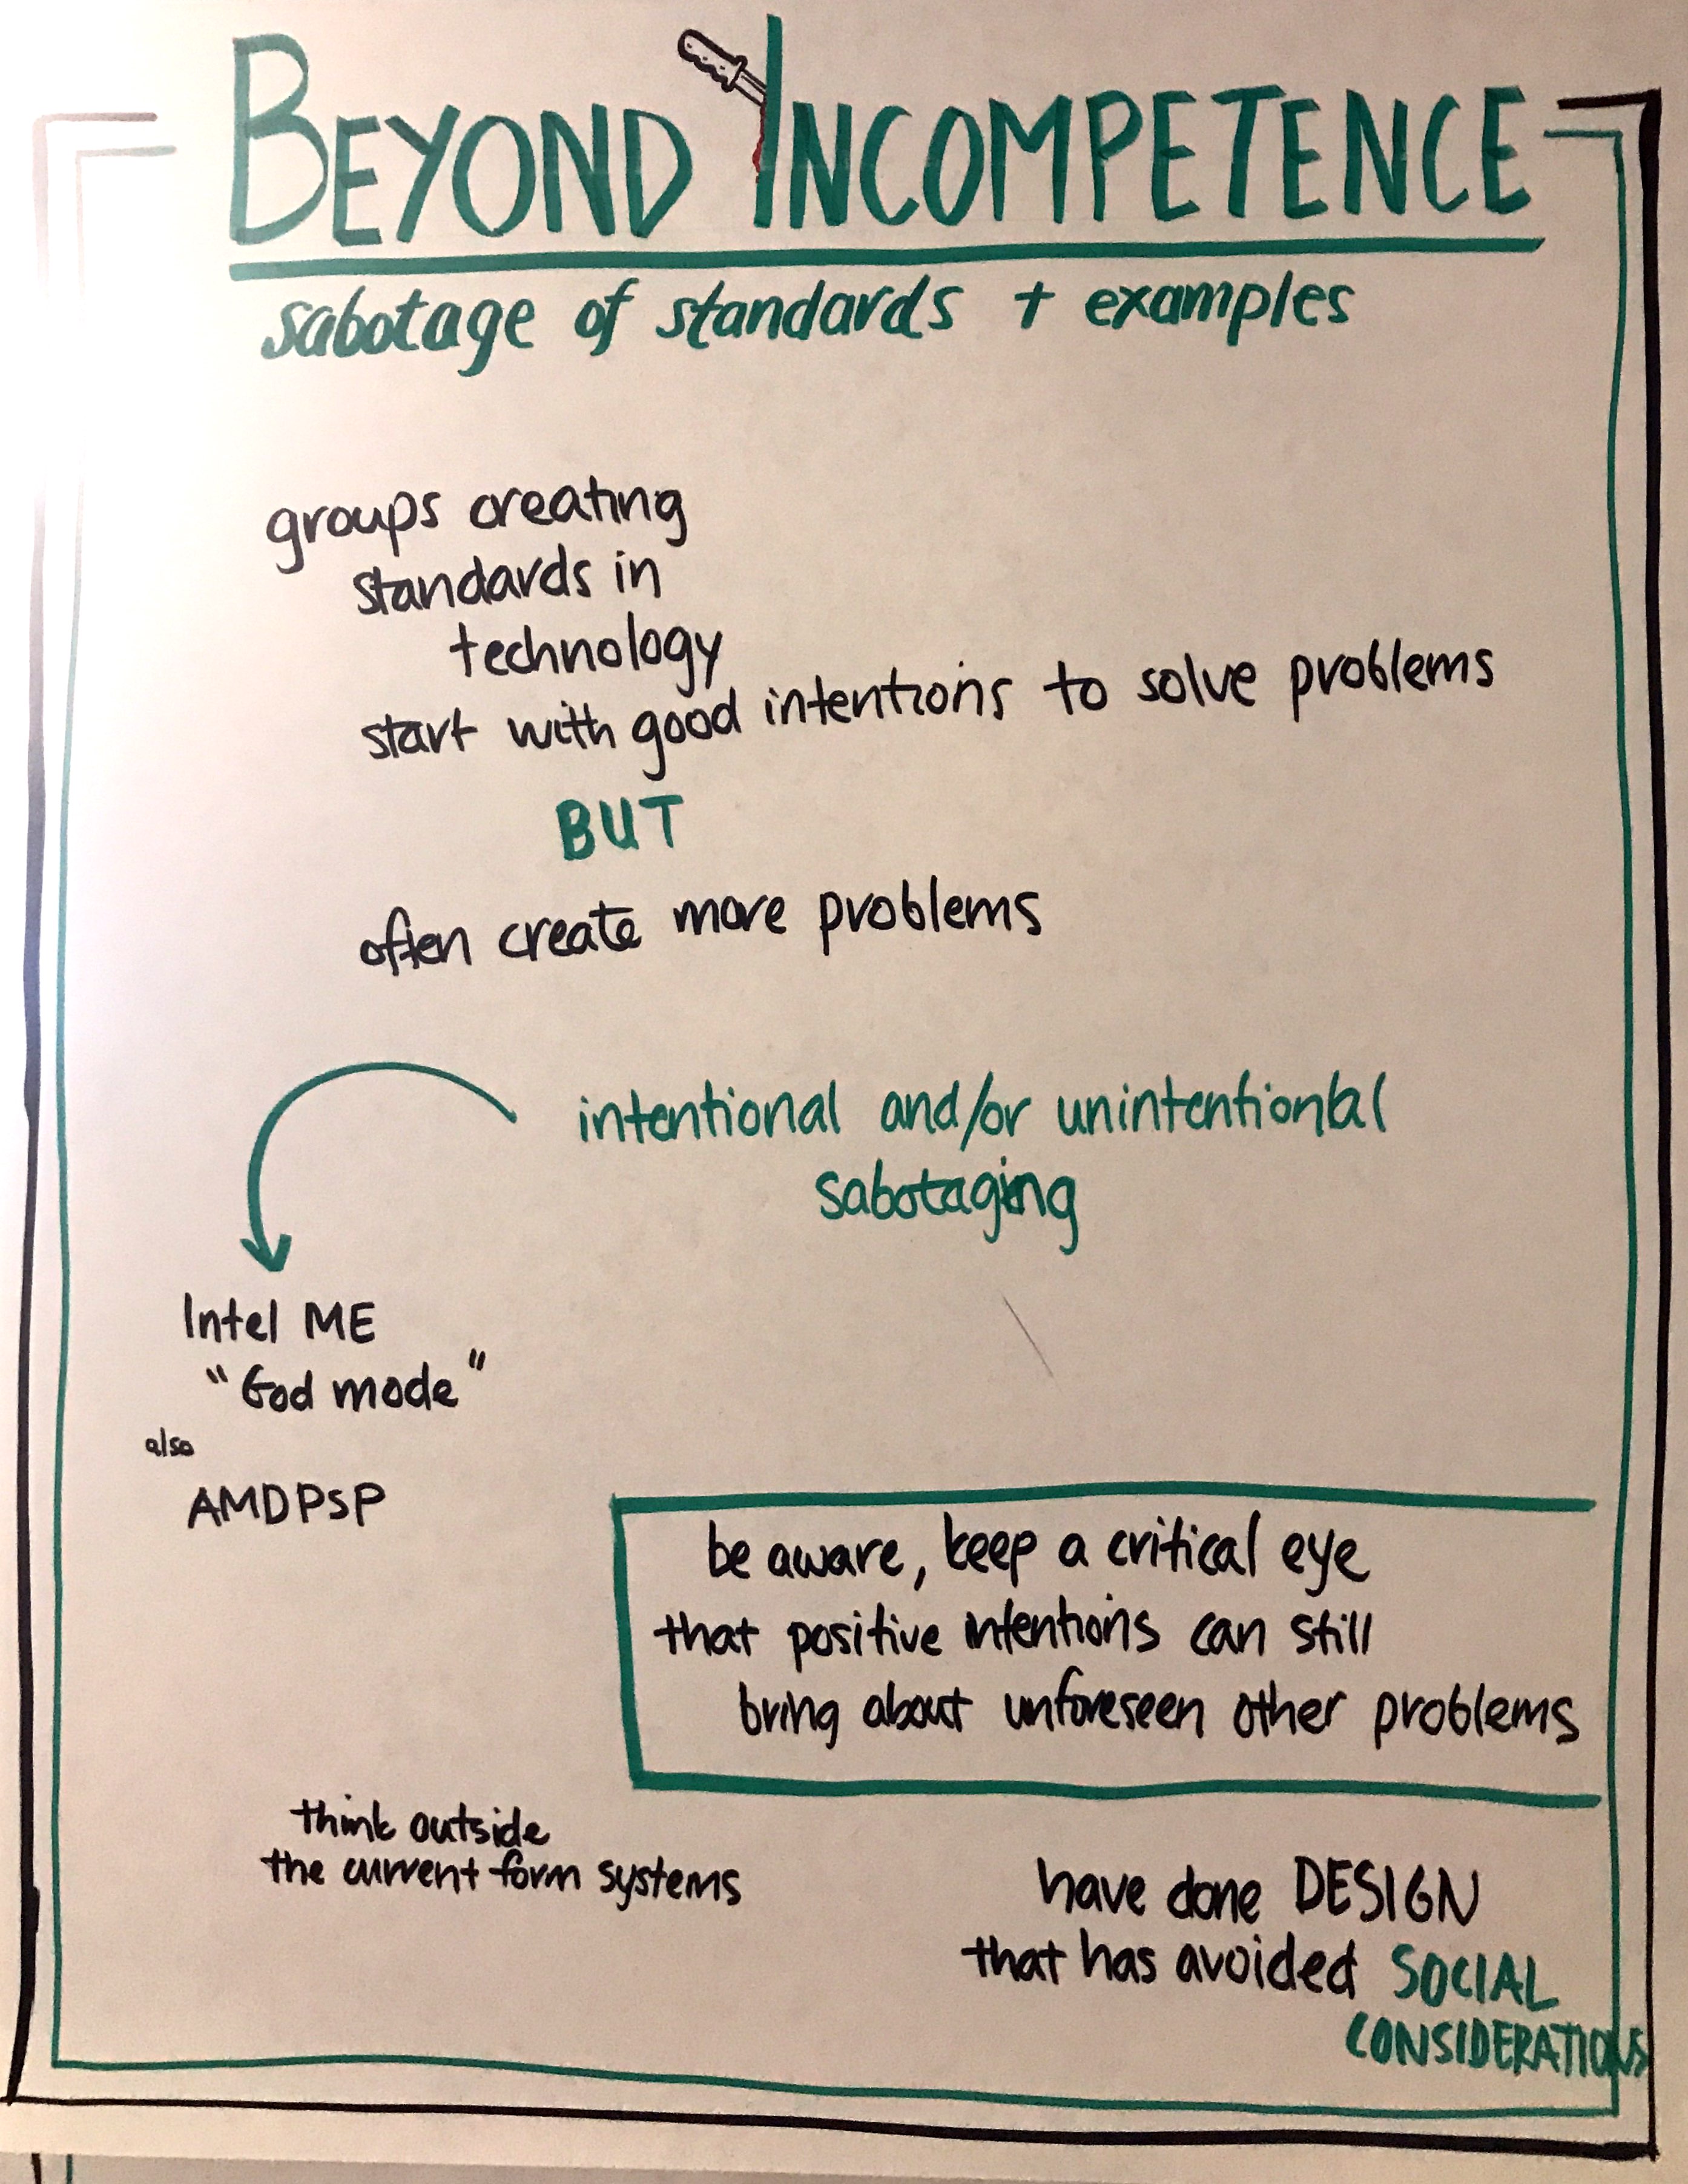 BEYOND INCOMPETENCE
sabotage of standards + examples
groups creating
standards in
technology
start with good intentions to solve problems
BUT
often create more problems
intentional and/or unintentional
sabotaging
Intel ME
"God mode"
also
AMD PSP
be aware, keep a critical eye
that positive intentions can still
bring about unforeseen other problems
think outside
the current form systems
have done DESIGN
that has avoided SOCIAL
CONSIDERATIONS